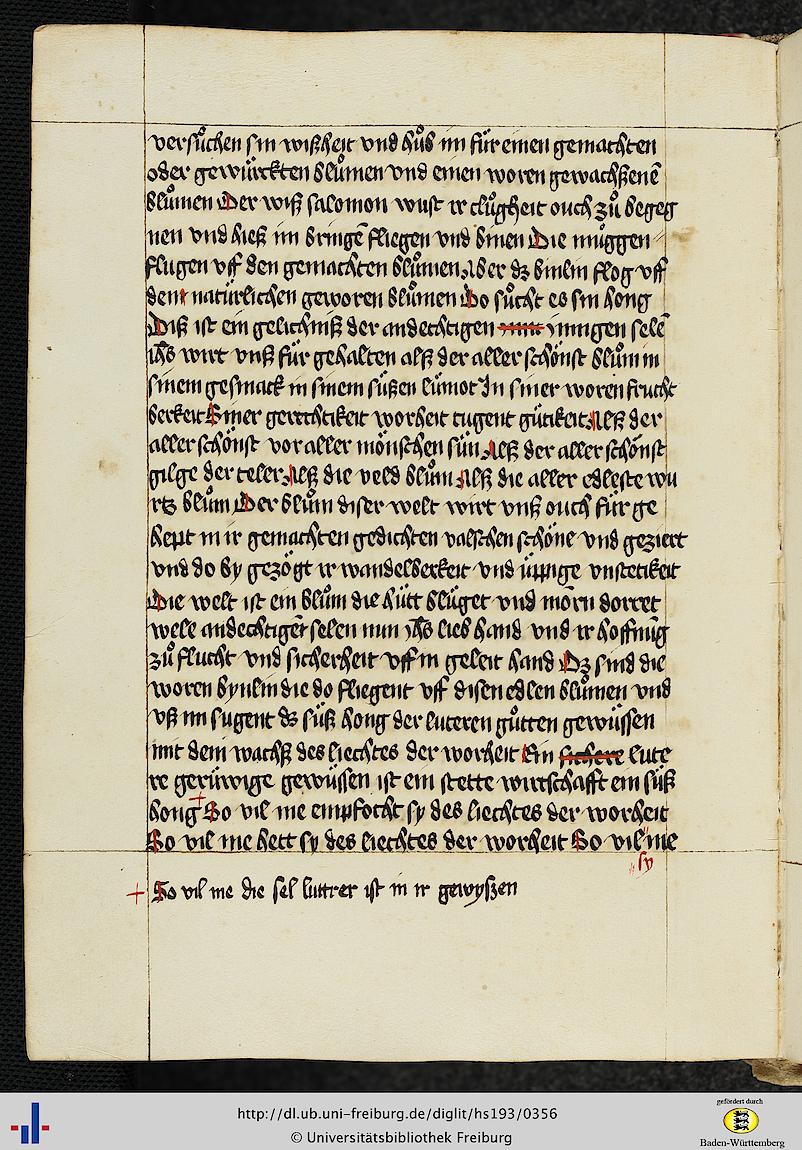 versuͦchen sin wißheit vnd huͦb im für einen gemachten
oder gewürckten bluͦmen vnd einen woren gewachßenē
bluͦmen Der wiß salomon wust ir cluͦgheit ouch zuͦ begeg
nen vnd hieß im bringē fliegen vnd binen Die müggen
flugen vff den gemachten bluͦmen Aber dz binlin flog vff
dem natürlichen geworen bluͦmen Do suͦcht es sin hong
Diß ist ein gelichniß der andechtigen innigen selē
ih̄s wirt vnß für gehalten alß der aller schönst bluͦm in
sinem gesmack in sinem süßen lümot In siner woren frucht
berkeit Siner gerechtikeit worheit tugent gütikeit Alß der
aller schönst vor aller mönschen sün Alß der aller schönst
gilge der teler Alß die veld bluͦm Alß die aller edleste wu
rtz bluͦm Der bluͦm diser welt wirt vnß ouch für ge
hept in ir gemachten gedichten valschen schöne vnd geziert
vnd do by gezögt ir wandelberkeit vnd üppige vnstetikeit
Die welt ist ein bluͦm die hütt blüget vnd morn dorret
wele andechtiger selen nun ih̄s lieb hand vnd ir hoffnūg
zuͦ flucht vnd sicherheit vff in geleit hand Dz sind die
woren bynlin die do fliegent vff disen edlen bluͦmen vnd
vß im sugent dz süß hong der luteren guͦtten gewüssen
mit dem wachß des liechtes der worheit Ein sichere lute
re gerüwige gewüssen ist ein stette wirtschafft ein süß
hong + So vil me empfocht sy des liechtes der worheit
So vil me hett sy des liechtes der worheit So vil me
sy
+ So vil me die sel luttrer ist in ir gewyßen
http://dl.ub.uni-freiburg.de/diglit/hs193/0356
© Universitätsbibliothek Freiburg
gefördert durch
Baden-Württemberg